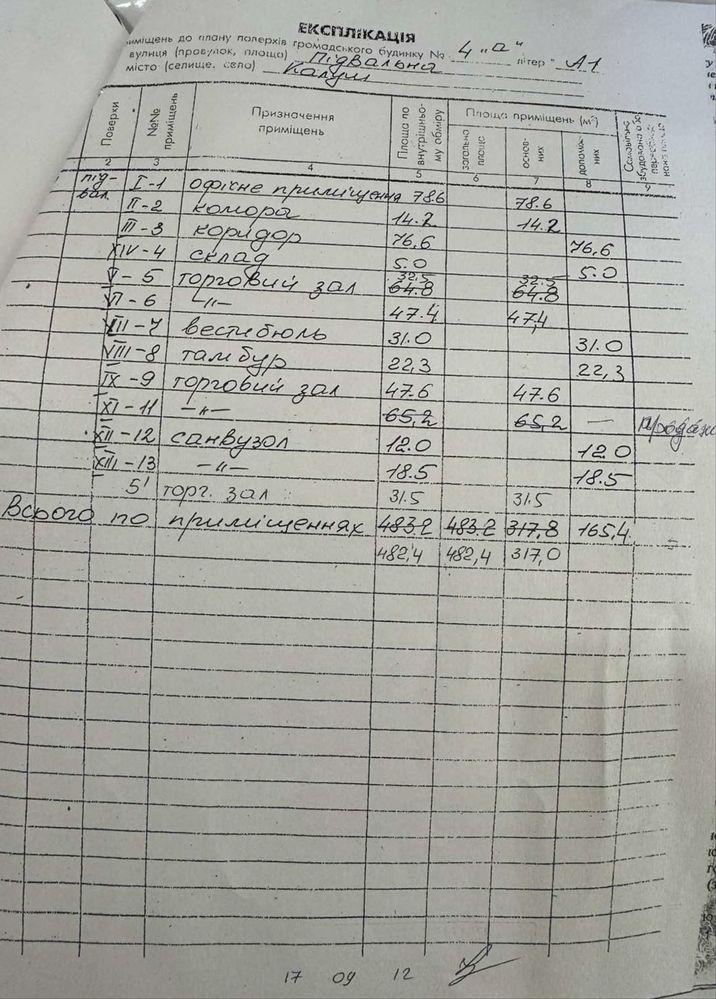 ЕКСПЛІКАЦІЯ
иміщень до плану поверхів громадського будинку № 4 "а" літер " А1
вулиця (провулок, площа) Підвальна
місто (селище, село) Калуш
Поверхи
№№ приміщень
Призначення приміщень
Площа по внутрішньому обміру
Площа приміщень (м²)
загальна площа
основних
допоміжних
2 3 4 5 6 7 8 9
підвал I-1 офісне приміщення 78.6 78.6
II-2 комора 14.2 14.2
III-3 коридор 76,6 76,6
XIV-4 склад 5.0 5.0
32.5 32.5
V-5 торговий зал 64.8 64.8
VI-6 -"- 47.4 47,4
VII-7 вестибюль 31.0 31.0
VIII-8 тамбур 22,3 22,3
IX-9 торговий зал 47.6 47.6
XI-11 -"- 65,2 65,2 —
XII-12 санвузол 12.0 12.0
XIII-13 -"- 18.5 18.5
5' торг. зал 31.5 31.5
Всього по приміщеннях 483.2 483.2 317,8 165,4
482,4 482,4 317,0
17 09 12